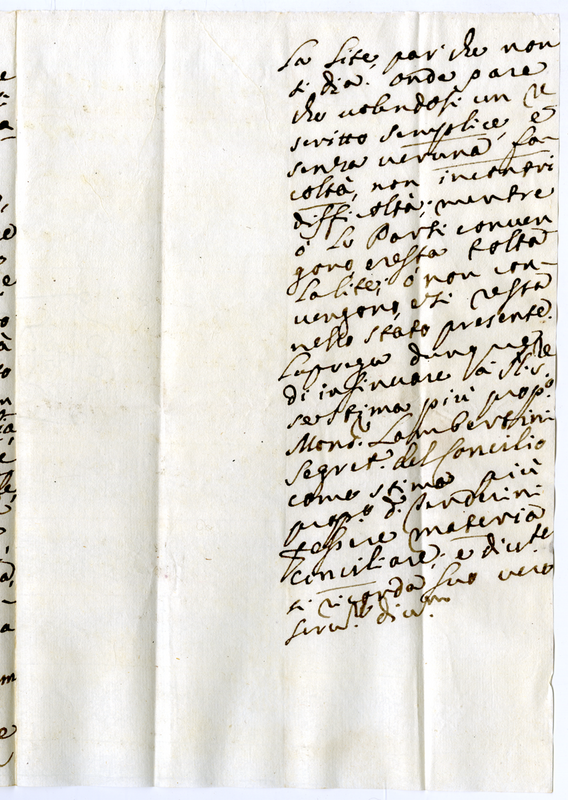 La Lite, par che non
si dia: onde pare
che volendosi un re
scritto semplice, e
senza veruna fa-
coltà, non incontri
difficoltà; mentre
ò le Parti conven
gono, e resta tolta
la lite; ò non con-
vengono, e si resta
nello stato presente.
La prega dunque
di insinuare
se stima più prop.o
Mons.r Lambertini
Segret.o del Concilio
come stima più
prop.o di
essere materia
conciliare; e
si ricorda suo vero